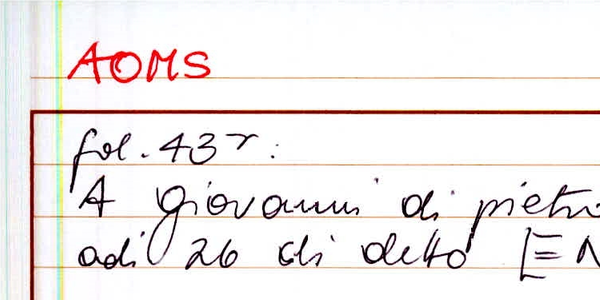 AOMS
fol. 43r:
A Giovanni di pietro
adi 26 di detto [= N